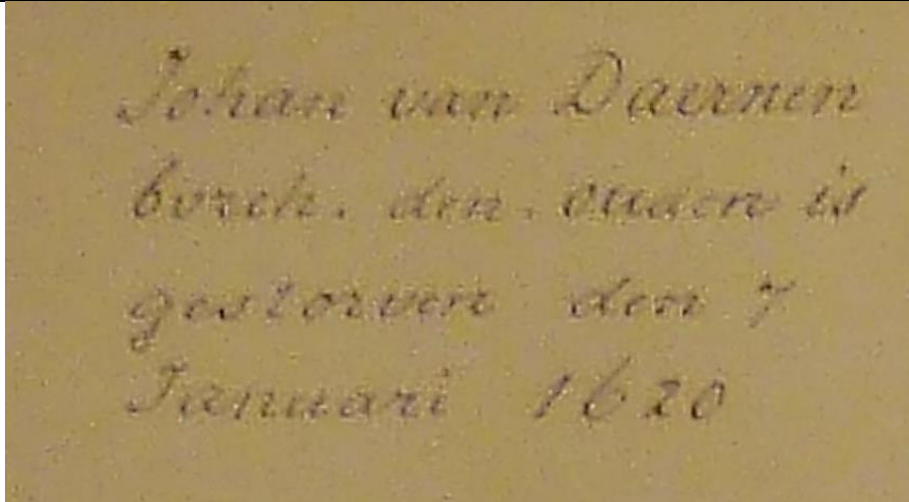 Johan van Daernen
borch. den. ouden is
gestorven den 7
Januari 1620